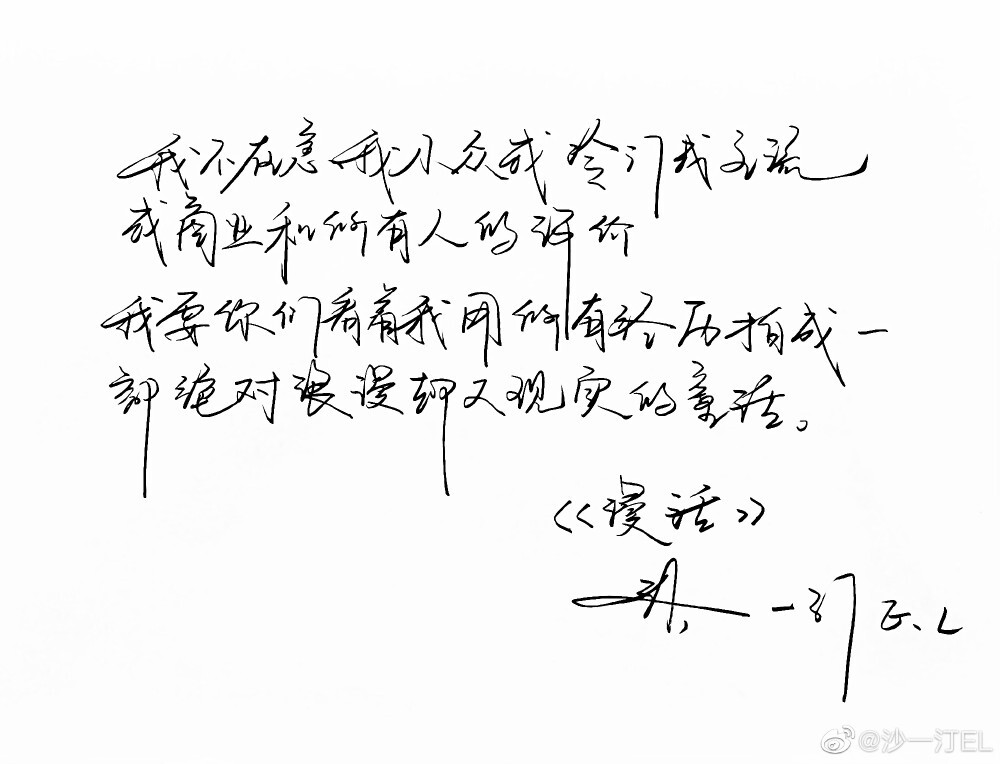 我不在意我小众或冷门或主流
或商业和所有人的评价
我要你们看着我用所有经历拍成一
部绝对浪漫却又现实的童话。
《漫话》
沙一汀E.L
@沙一汀EL